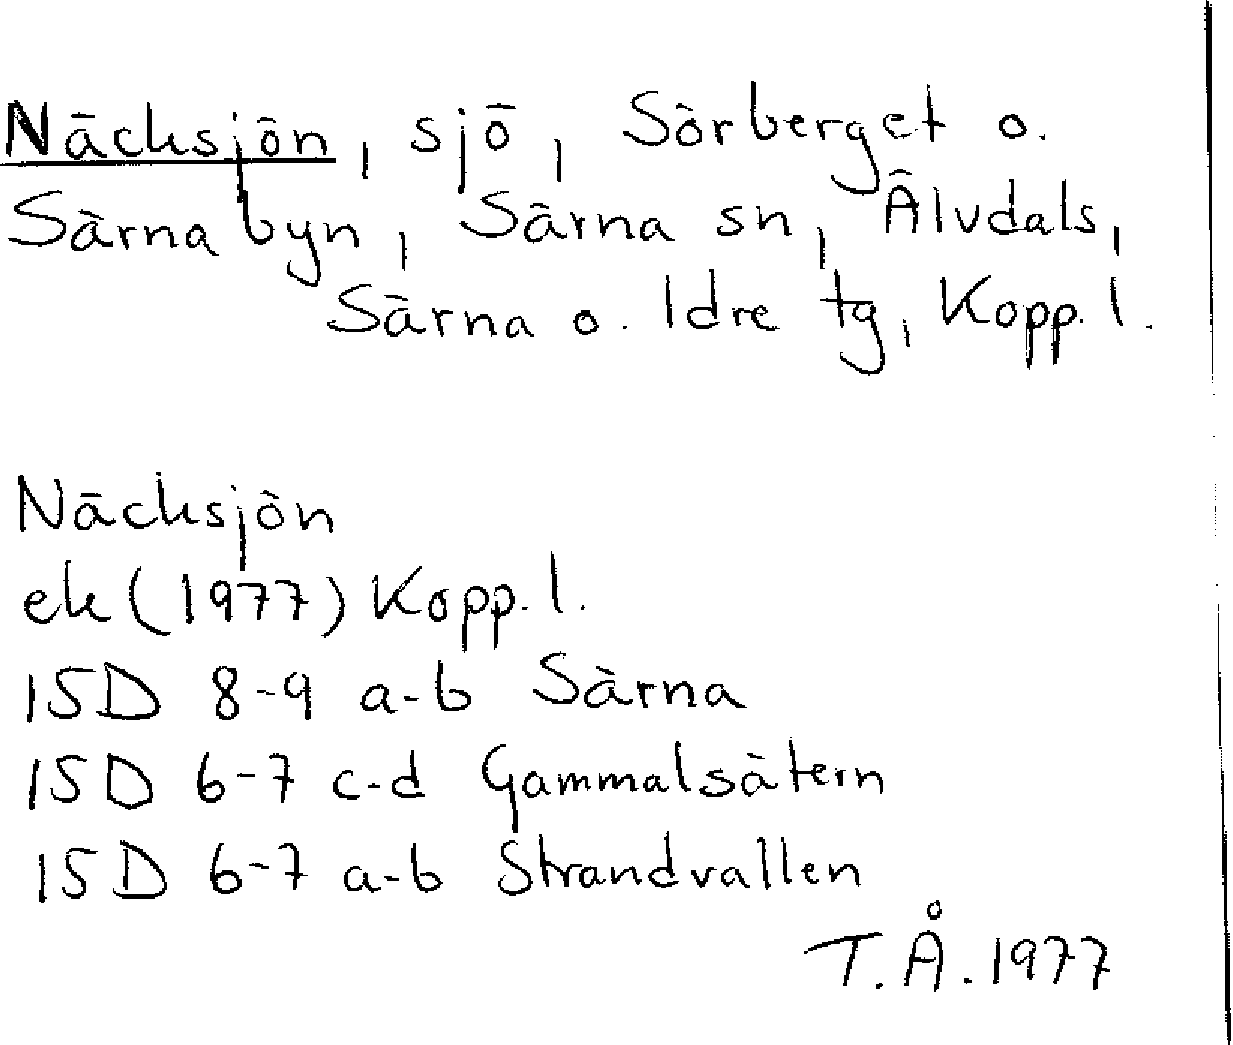 Näcksjön, sjö, Sörberget o.
Särnabyn, Särna sn, Älvdals,
Särna o. Idre tg, Kopp. l.
Näcksjön
ek (1977) Kopp. l.
15D 8-9 a-b Särna
15D 6-7 c-d Gammalsätern
15D 6-7 a-b Strandvallen
T.Å. 1977